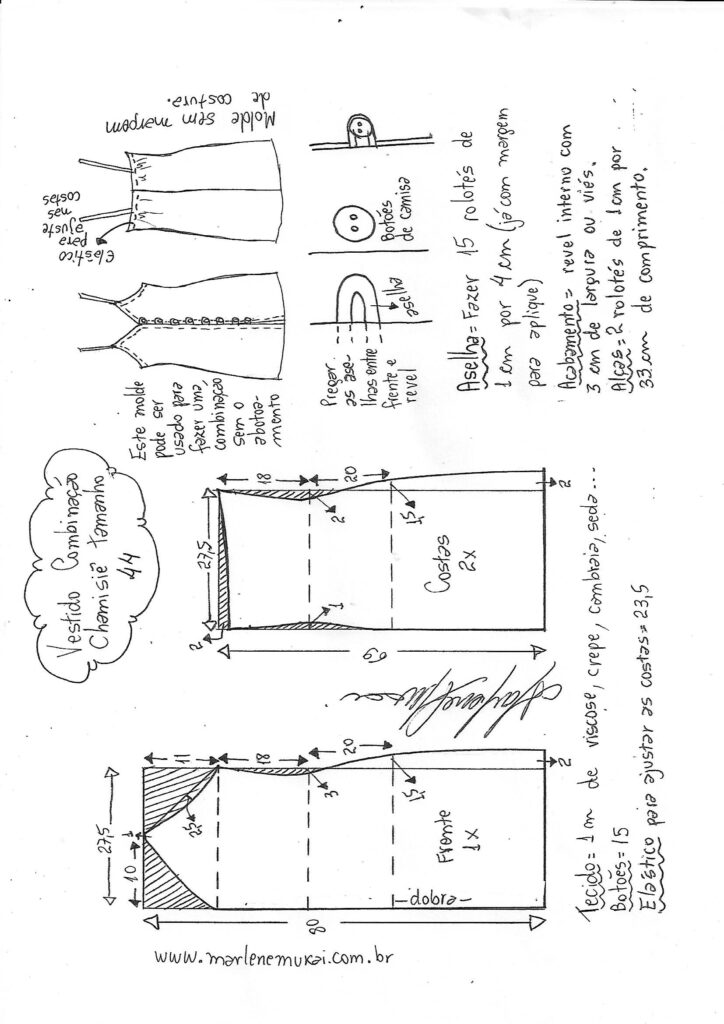 Vestido Combinação
Chemisiê tamanho
44
Este molde
pode ser
usado para
fazer uma
combinação
sem o
abotoa-
mento
Elástico
para
ajuste
nas
costas
Molde sem margem
de costura.
Pregar
as ase-
lhas entre
frente e
revel
aselha
Botões
de camisa
Aselha = Fazer 15 rolotés de
1 cm por 4 cm (já com margem
para aplique)
Acabamento = revel interno com
3 cm de largura ou viés.
Alças = 2 rolotés de 1 cm por
33 cm de comprimento.
27,5
10
1
11
18
20
2,5
3
1,5
2
80
Frente
1x
-dobra-
27,5
2
18
20
1
2
1,5
2
69
Costas
2x
www.marlenemukai.com.br
Tecido = 1 m de viscose, crepe, cambraia, seda...
Botões = 15
Elástico para ajustar as costas = 23,5